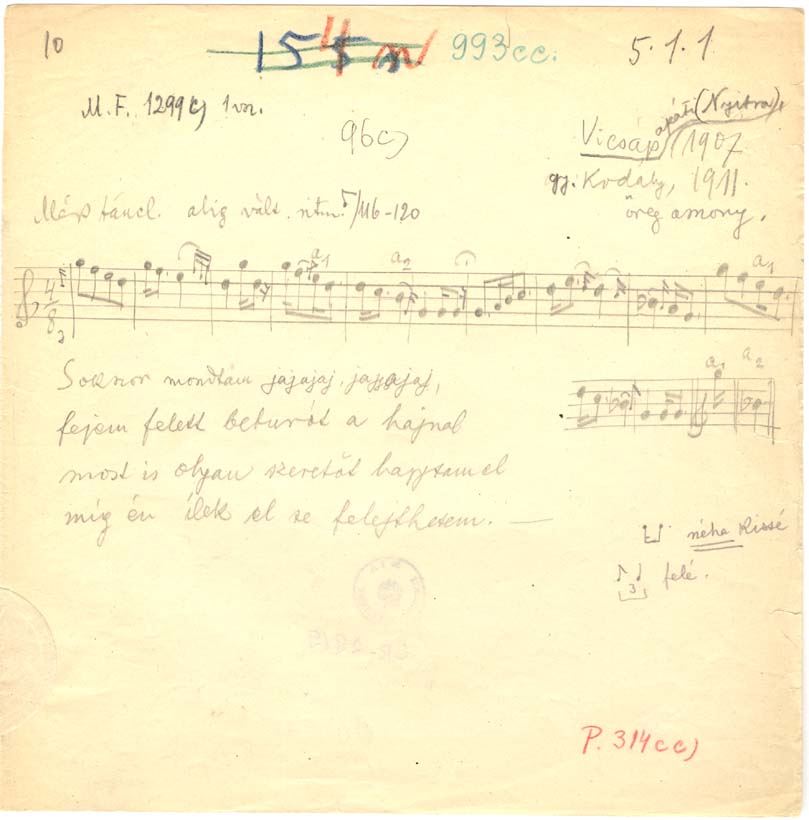 10
993cc.
5. 1. 1
M. F. 1299c) 1 vsz.
96c)
Vicsáp apáti (Nyitra),
(1907
gy. Kodály, 1911.
öreg asszony.
táncl. alig vált. ritm. 116-120
a1 a2 a1
4
8
2
Sokszor mondtam jajajaj, jajjajaj,
a1 a2
fejem felett beturót a hajnal
most is olyan szeretőt kaptam el
míg én élek el se felejthesem. —
néha kissé
3 felé.
P. 314cc)